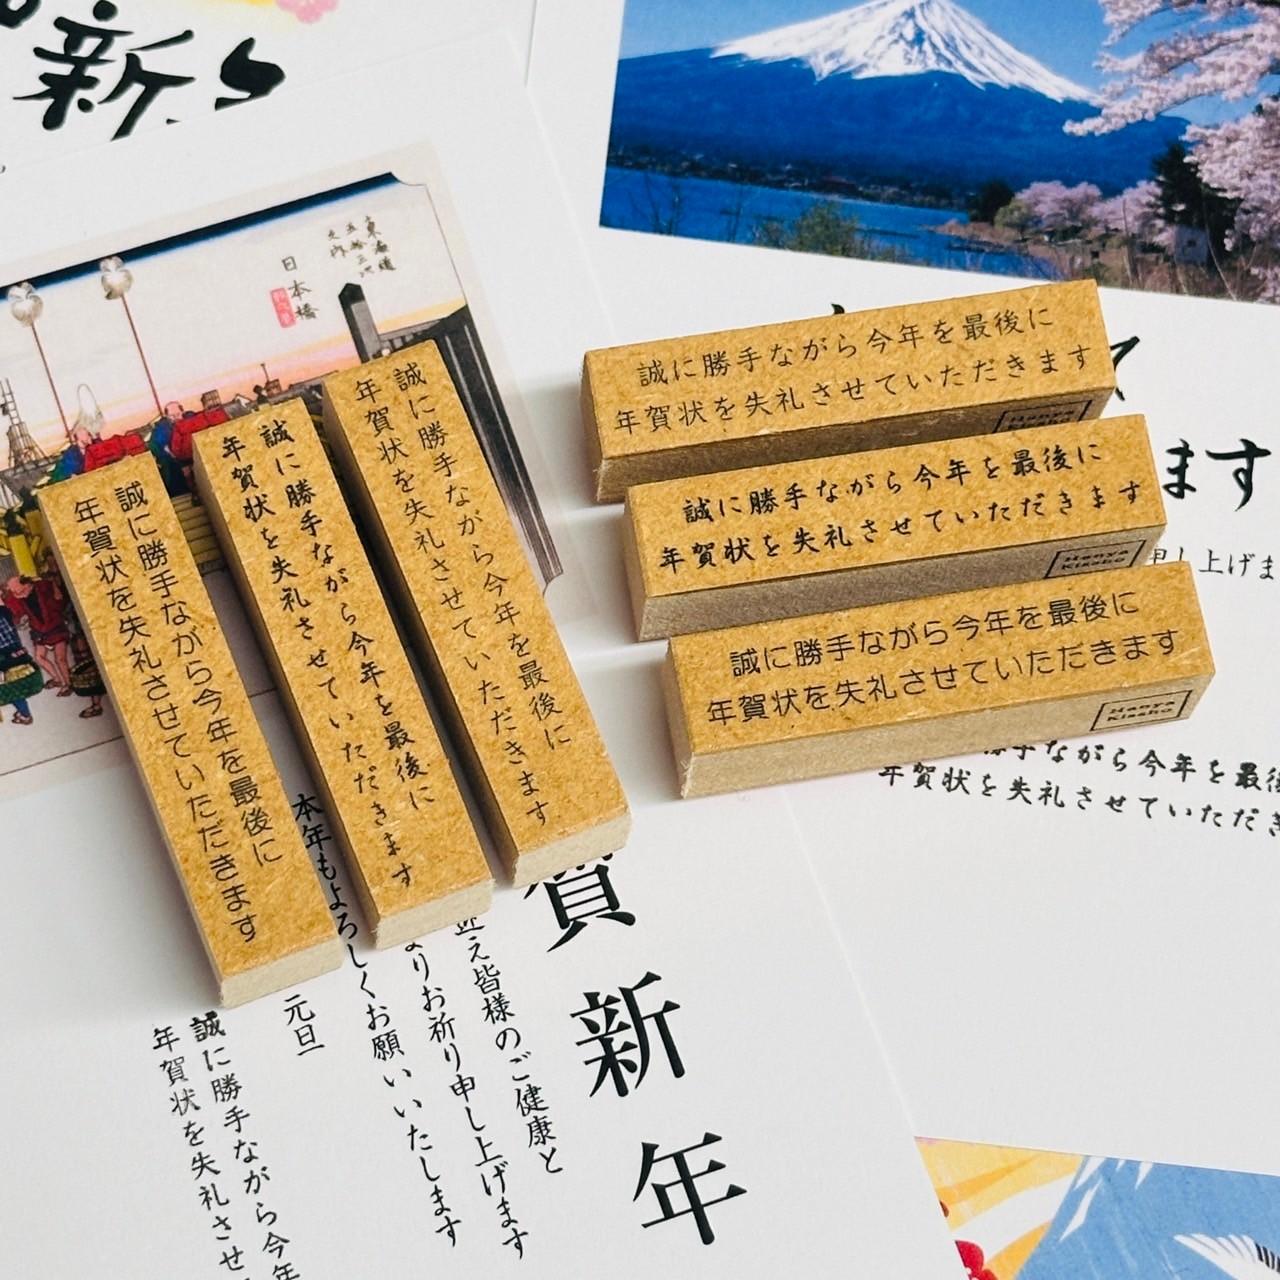 新
東海道
五拾三次
之内
日本橋
誠に勝手ながら今年を最後に
年賀状を失礼させていただきます
誠に勝手ながら今年を最後に
年賀状を失礼させていただきます
誠に勝手ながら今年を最後に
年賀状を失礼させていただきます
誠に勝手ながら今年を最後に
年賀状を失礼させていただきます
Hanya
Kissho
誠に勝手ながら今年を最後に
年賀状を失礼させていただきます
Hanya
Kissho
誠に勝手ながら今年を最後に
年賀状を失礼させていただきます
Hanya
Kissho
ます
申し上げま
勝手ながら今年を最後
年賀状を失礼させていただき
賀新年
迎え皆様のご健康と
よりお祈り申し上げます
本年もよろしくお願いいたします
元旦
誠に勝手ながら今年
年賀状を失礼させ